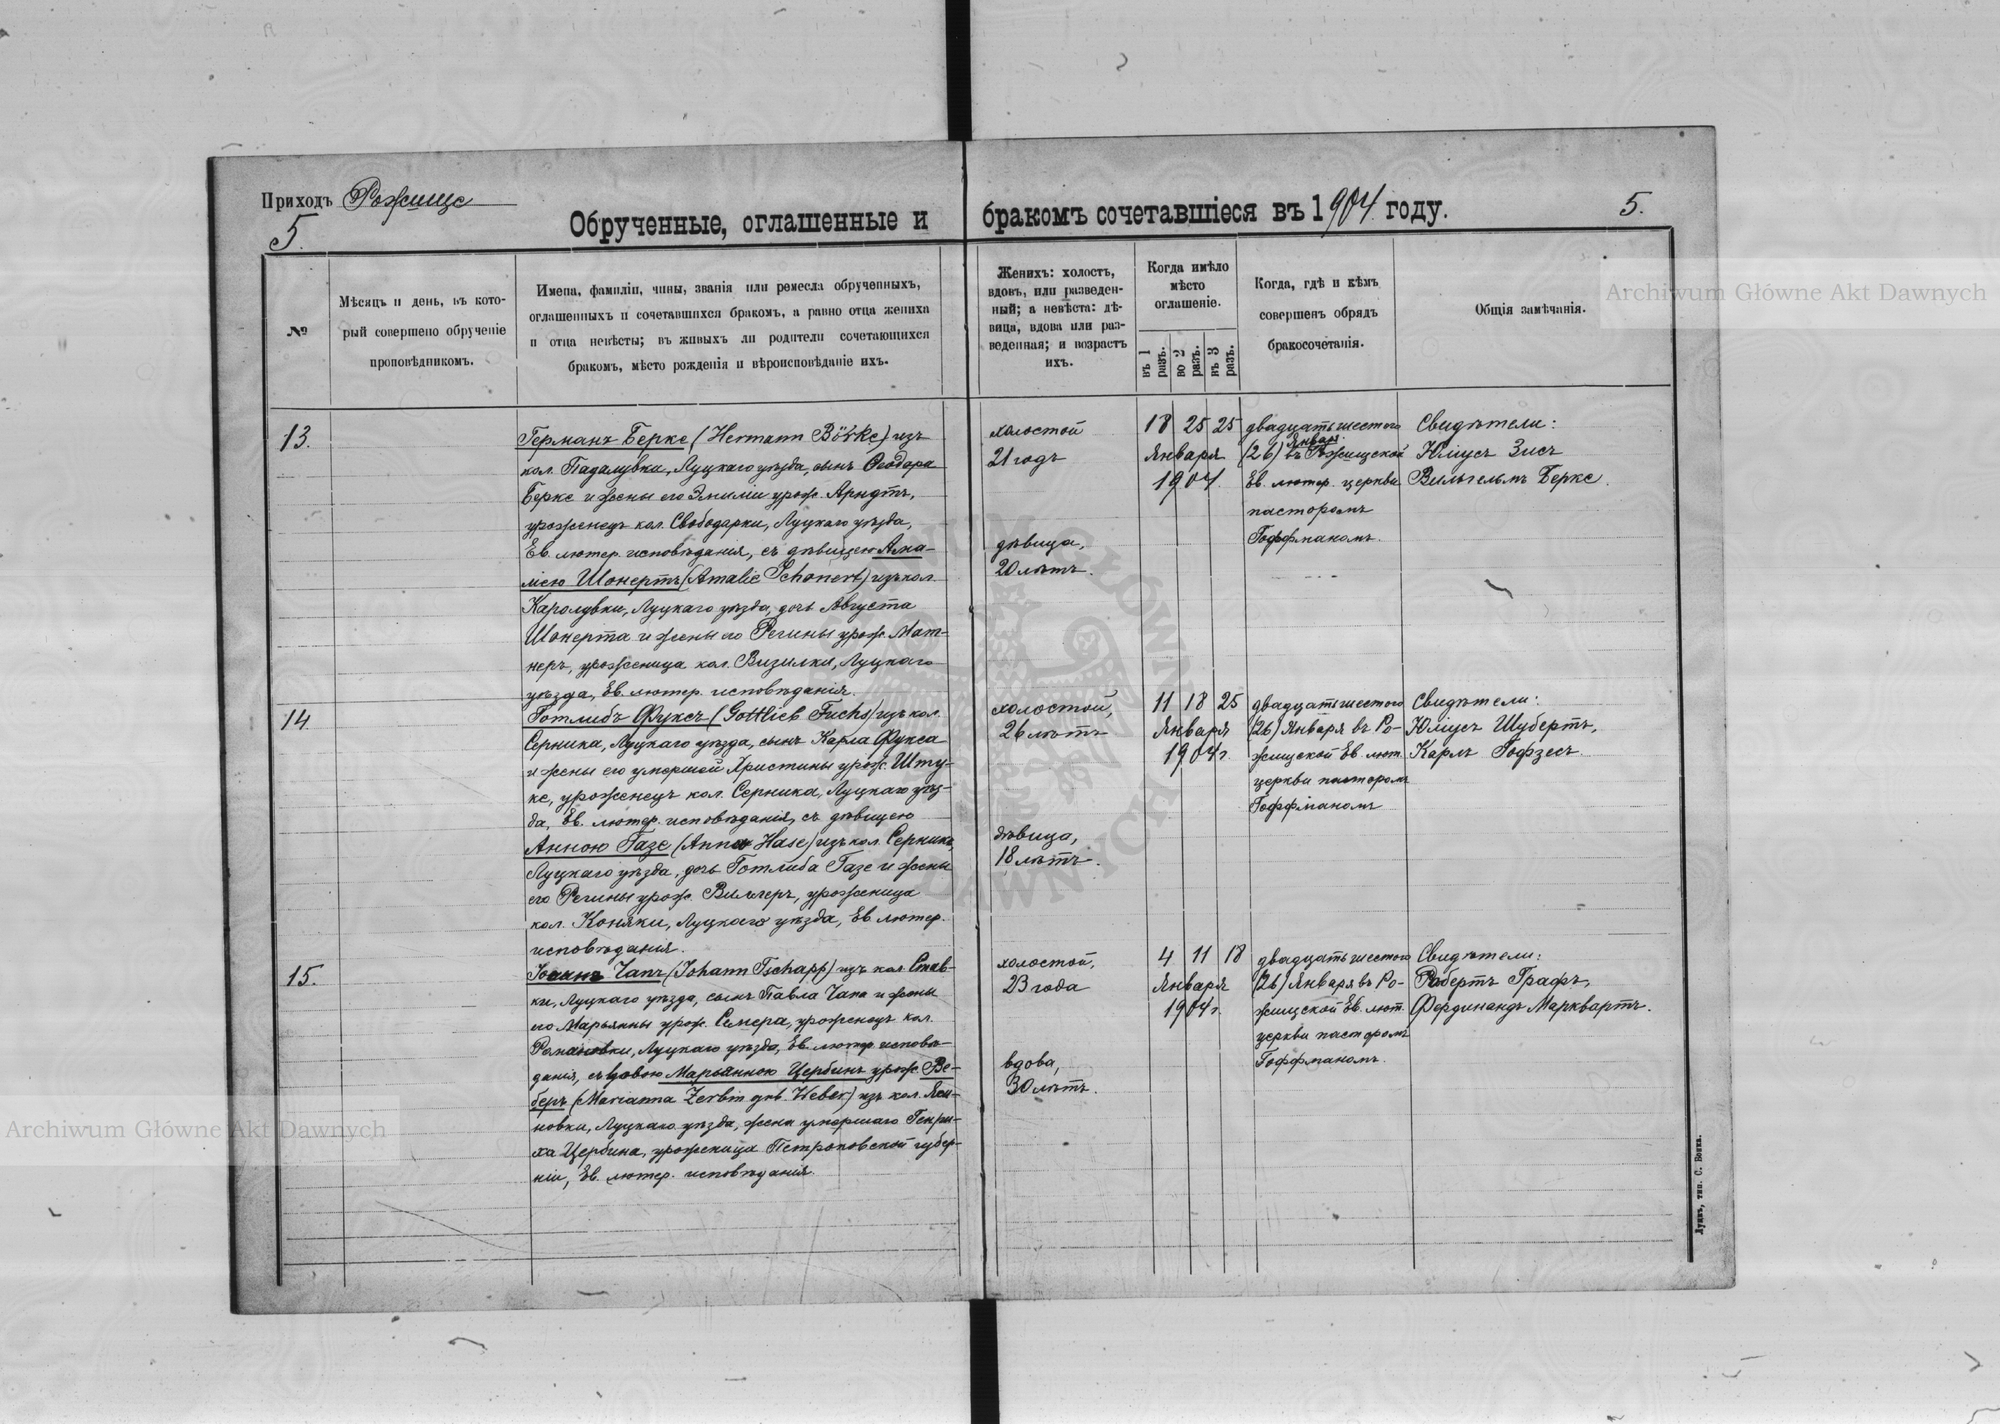 Приходъ Рожище
5.
Обрученные, оглашенные и бракомъ сочетавшіеся въ 1904 году.
5.
№
Мѣсяцъ и день, въ кото-
рый совершено обрученіе
проповѣдникомъ.
Имена, фамиліи, чины, званія или ремесла обрученныхъ,
оглашенныхъ и сочетавшихся бракомъ, а равно отца жениха
и отца невѣсты; въ живыхъ ли родители сочетающихся
бракомъ, мѣсто рожденія и вѣроисповѣданіе ихъ.
Женихъ: холостъ,
вдовъ, или разведен-
ный; а невѣста: дѣ-
вица, вдова или раз-
веденная; и возрастъ
ихъ.
Когда имѣло
мѣсто
оглашеніе.
въ 1 разъ.
во 2 разъ.
въ 3 разъ.
Когда, гдѣ и кѣмъ
совершенъ обрядъ
бракосочетанія.
Общія замѣчанія.
13.
Германъ Берке (Hermann Börke) изъ
кол. Падалувки, Луцкаго уѣзда, сынъ Ѳеодора
Берке и жены его Эмиліи урож. Арндтъ,
уроженецъ кол. Свободарки, Луцкаго уѣзда,
Ев. лютер. исповѣданія, съ дѣвицею Ама-
ліею Шонертъ (Amalie Schonert) изъ кол.
Каролувки, Луцкаго уѣзда, дочь Августа
Шонерта и жены его Регины урож. Мат-
неръ, уроженица кол. Визилки, Луцкаго
уѣзда, Ев. лютер. исповѣданія.
холостой
21 годъ
дѣвица,
20 лѣтъ.
18 25 25
Января
1904.
двадцать шестого
Января
(26) въ Рожищской
Ев. лютер. церкви
пасторомъ
Гоффманомъ.
Свидѣтели:
Юліусъ Зисъ
Вильгельмъ Берке.
14.
Готлибъ Фуксъ (Gottlieb Fuchs) изъ кол.
Серника, Луцкаго уѣзда, сынъ Карла Фукса
и жены его умершой Христины урож. Шту-
ке, уроженецъ кол. Серника, Луцкаго уѣз-
да, Ев. лютер. исповѣданія, съ дѣвицею
Анною Газе (Anna Hase) изъ кол. Серника,
Луцкаго уѣзда, дочь Готлиба Газе и жены
его Регины урож. Вильгеръ, уроженица
кол. Коняки, Луцкаго уѣзда, Ев. лютер.
исповѣданія.
холостой,
26 лѣтъ
дѣвица,
18 лѣтъ.
11 18 25
Января
1904 г.
двадцать шестого
(26) Января въ Ро-
жищской Ев. лют.
церкви пасторомъ
Гоффманомъ
Свидѣтели:
Юліусъ Шубертъ,
Карлъ Гофзесъ.
15.
Іоаннъ Чапъ (Johann Tschapp) изъ кол. Став-
ки, Луцкаго уѣзда, сынъ Павла Чапа и жены
его Марьянны урож. Семера, уроженецъ кол.
Романовки, Луцкаго уѣзда, Ев. лютер. исповѣ-
данія, съ вдовою Марьянною Цербинъ урож. Ве-
беръ (Marianna Zerbin geb. Weber) изъ кол. Яси-
новки, Луцкаго уѣзда, жена умершаго Генри-
ха Цербина, уроженица Петроковской губер-
ніи, Ев. лютер. исповѣданія.
холостой,
23 года
вдова,
30 лѣтъ.
4 11 18
Января
1904 г.
двадцать шестого
(26) Января въ Ро-
жищской Ев. лют.
церкви пасторомъ
Гоффманомъ.
Свидѣтели:
Робертъ Графъ,
Фердинандъ Марквартъ.
Луцкъ, тип. С. Бокка.
Archiwum Główne Akt Dawnych
Archiwum Główne Akt Dawnych